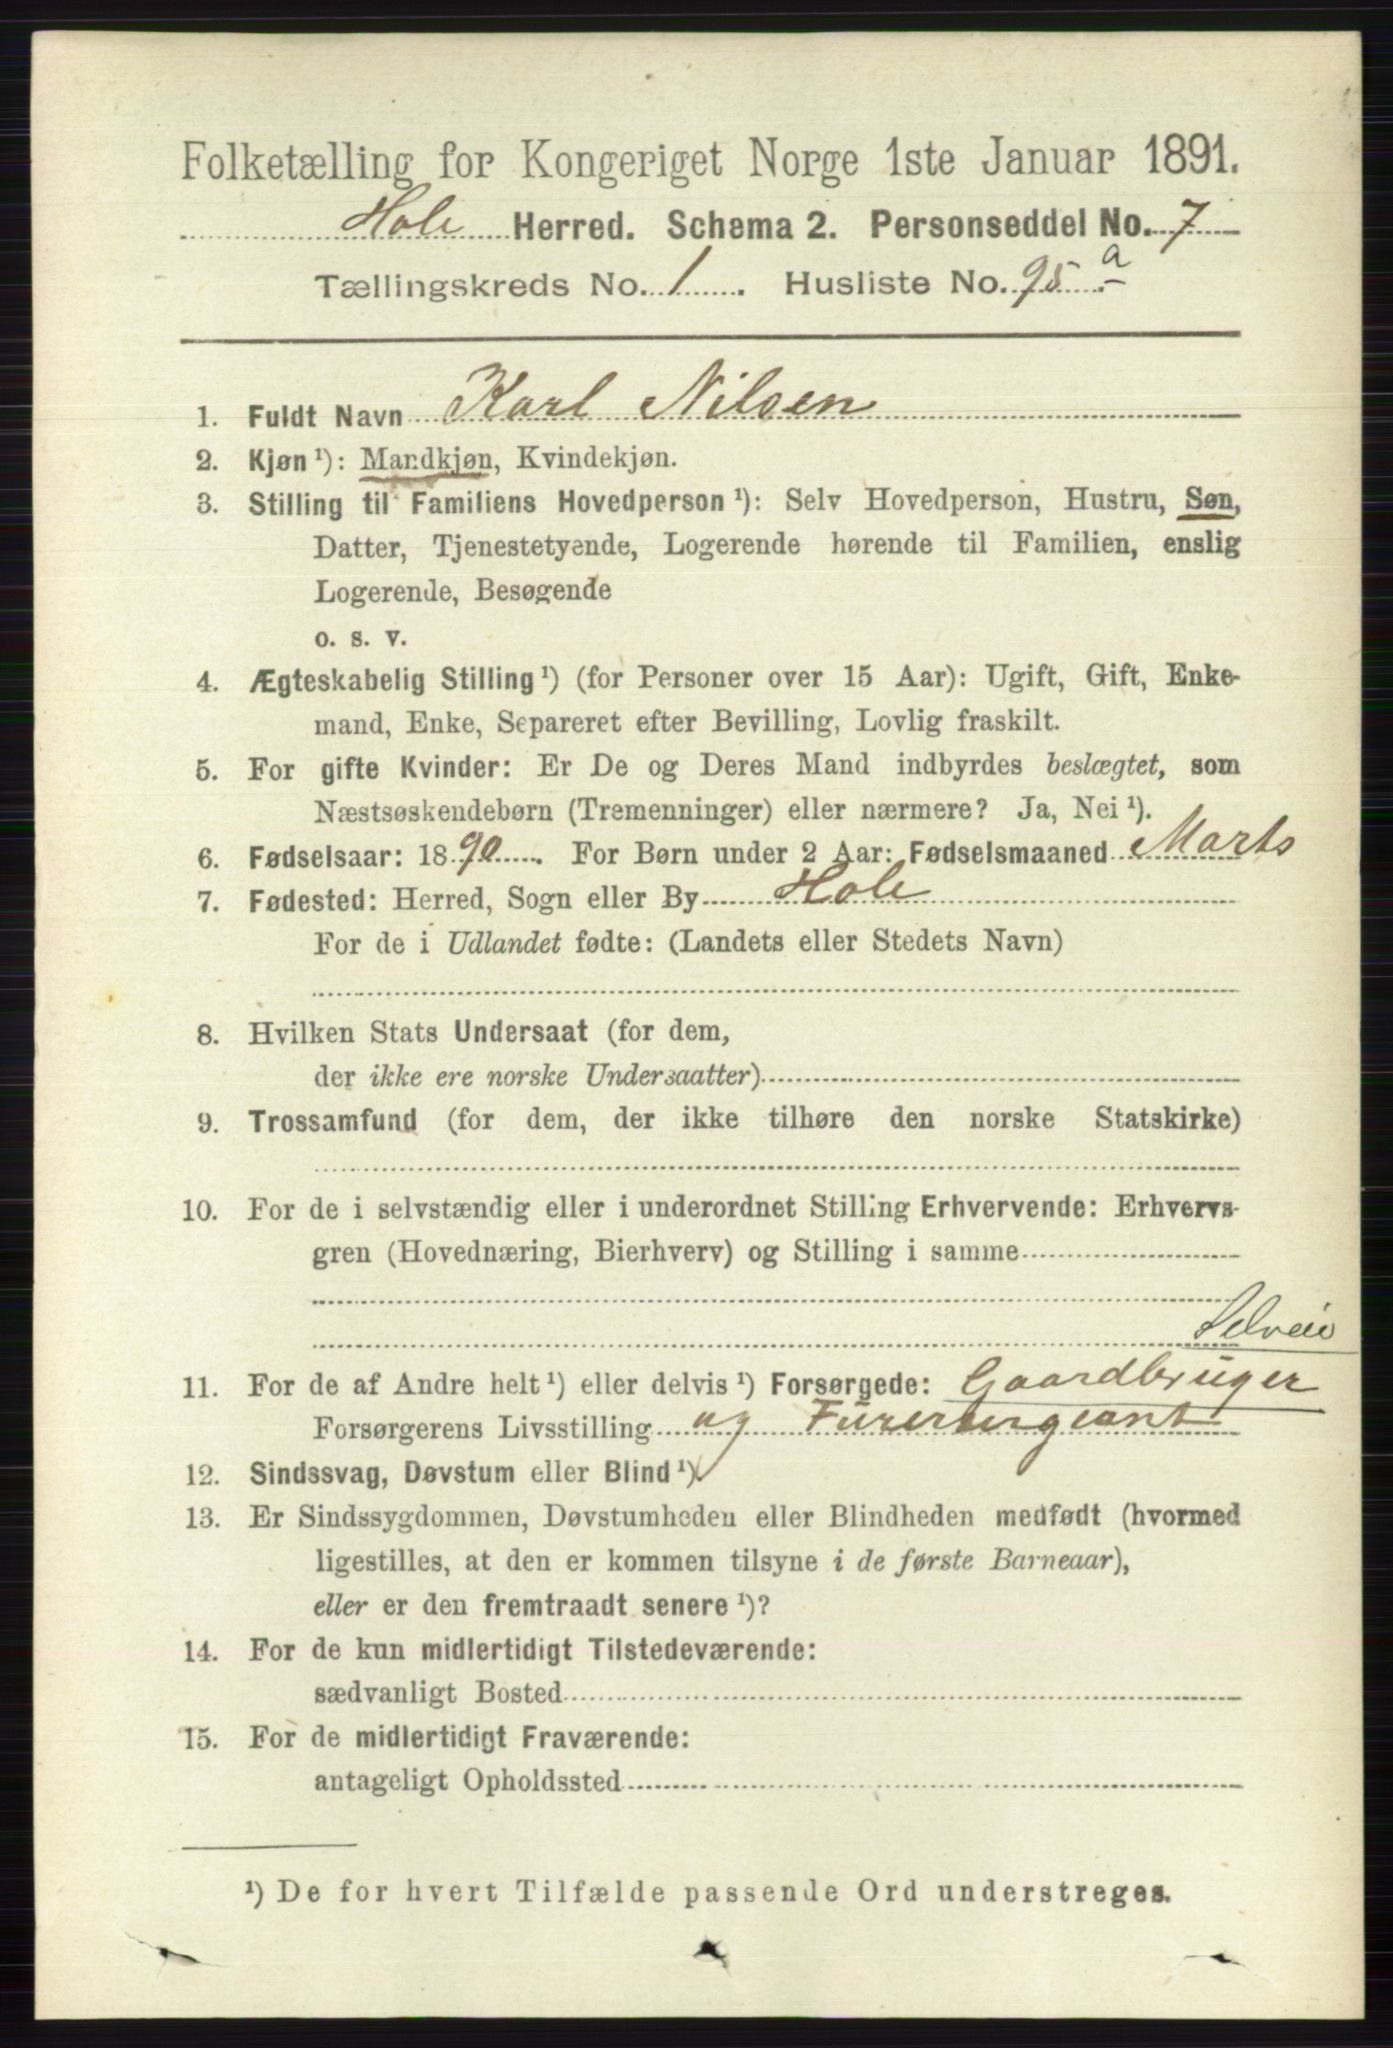 Folketælling for Kongeriget Norge 1ste Januar 1891.
Hole Herred. Schema 2. Personseddel No. 7
Tællingskreds No. 1. Husliste No. 95 a
1. Fuldt Navn Karl Nilsen
2. Kjøn ¹): Mandkjøn, Kvindekjøn.
3. Stilling til Familiens Hovedperson ¹): Selv Hovedperson, Hustru, Søn,
Datter, Tjenestetyende, Logerende hørende til Familien, enslig
Logerende, Besøgende
o. s. v.
4. Ægteskabelig Stilling ¹) (for Personer over 15 Aar): Ugift, Gift, Enke-
mand, Enke, Separeret efter Bevilling, Lovlig fraskilt.
5. For gifte Kvinder: Er De og Deres Mand indbyrdes beslægtet, som
Næstsøskendebørn (Tremenninger) eller nærmere? Ja, Nei ¹).
6. Fødselsaar: 1890. For Børn under 2 Aar: Fødselsmaaned Marts
7. Fødested: Herred, Sogn eller By Hole
For de i Udlandet fødte: (Landets eller Stedets Navn)
8. Hvilken Stats Undersaat (for dem,
der ikke ere norske Undersaatter)
9. Trossamfund (for dem, der ikke tilhøre den norske Statskirke)
10. For de i selvstændig eller i underordnet Stilling Erhvervende: Erhvervs-
gren (Hovednæring, Bierhverv) og Stilling i samme
Selveie
11. For de af Andre helt ¹) eller delvis ¹) Forsørgede: Gaardbruger
Forsørgerens Livsstilling og Furersergeant
12. Sindssvag, Døvstum eller Blind ¹).
13. Er Sindssygdommen, Døvstumheden eller Blindheden medfødt (hvormed
ligestilles, at den er kommen tilsyne i de første Barneaar),
eller er den fremtraadt senere ¹)?
14. For de kun midlertidigt Tilstedeværende:
sædvanligt Bosted
15. For de midlertidigt Fraværende:
antageligt Opholdssted
¹) De for hvert Tilfælde passende Ord understreges.